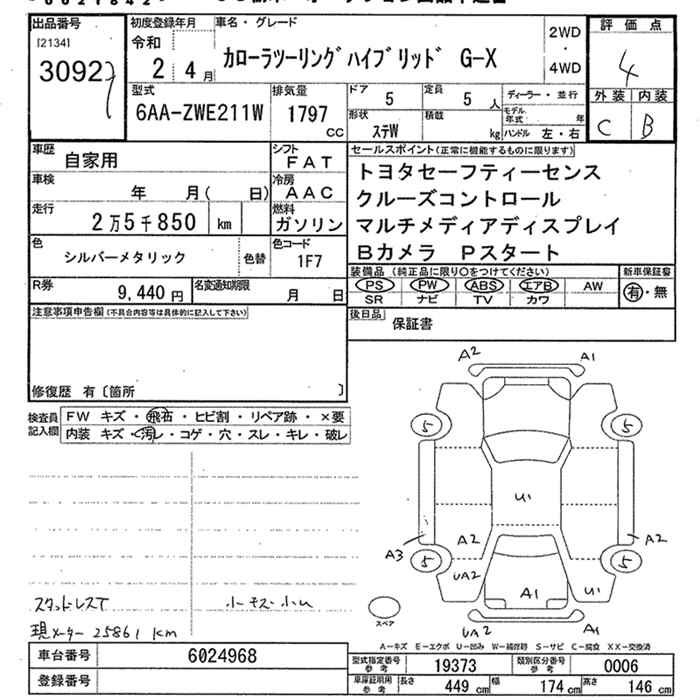 出品番号
[2134]
30927
初度登録年月
令和
2 4月
車名・グレード
カローラツーリングハイブリッド G-X
2WD
・
4WD
評価点
4
外装 内装
C B
型式
6AA-ZWE211W
排気量
1797
cc
ドア
5
定員
5 人
形状
ステW
積載
kg
ディーラー・並行
モデル年式 年
ハンドル 左・右
車歴
自家用
シフト
FAT
車検
年 月( 日)
冷房
AAC
走行
2万5千850 km
燃料
ガソリン
色
シルバーメタリック
色替
色コード
1F7
R券
9,440円
名変通知期限
月 日
セールスポイント(正常に機能するものに限ります)
トヨタセーフティーセンス
クルーズコントロール
マルチメディアディスプレイ
Bカメラ Pスタート
装備品 (純正品に限り○をつけてください)
PS PW ABS エアB AW
SR ナビ TV カワ
新車保証書
有・無
後日品
保証書
注意事項申告欄(不具合内容等は具体的に記入して下さい)
修復歴 有〔箇所 〕
検査員
記入欄
FW キズ・飛石・ヒビ割・リペア跡・×要
内装 キズ・汚レ・コゲ・穴・スレ・キレ・破レ
A2 A1
5 5
U1
A3 A2 A2
5 5
UA2 A1 U1
UA2 A1
スペア
スタッドレスT
現メーター 25861 km
A-キズ E-エクボ U-凹み W-補修跡 S-サビ C-腐食 XX-交換済
車台番号
6024968
登録番号
型式指定番号
参考
19373
類別区分番号
参考
0006
車庫証明用
参考
長さ 449 cm 幅 174 cm 高さ 146 cm